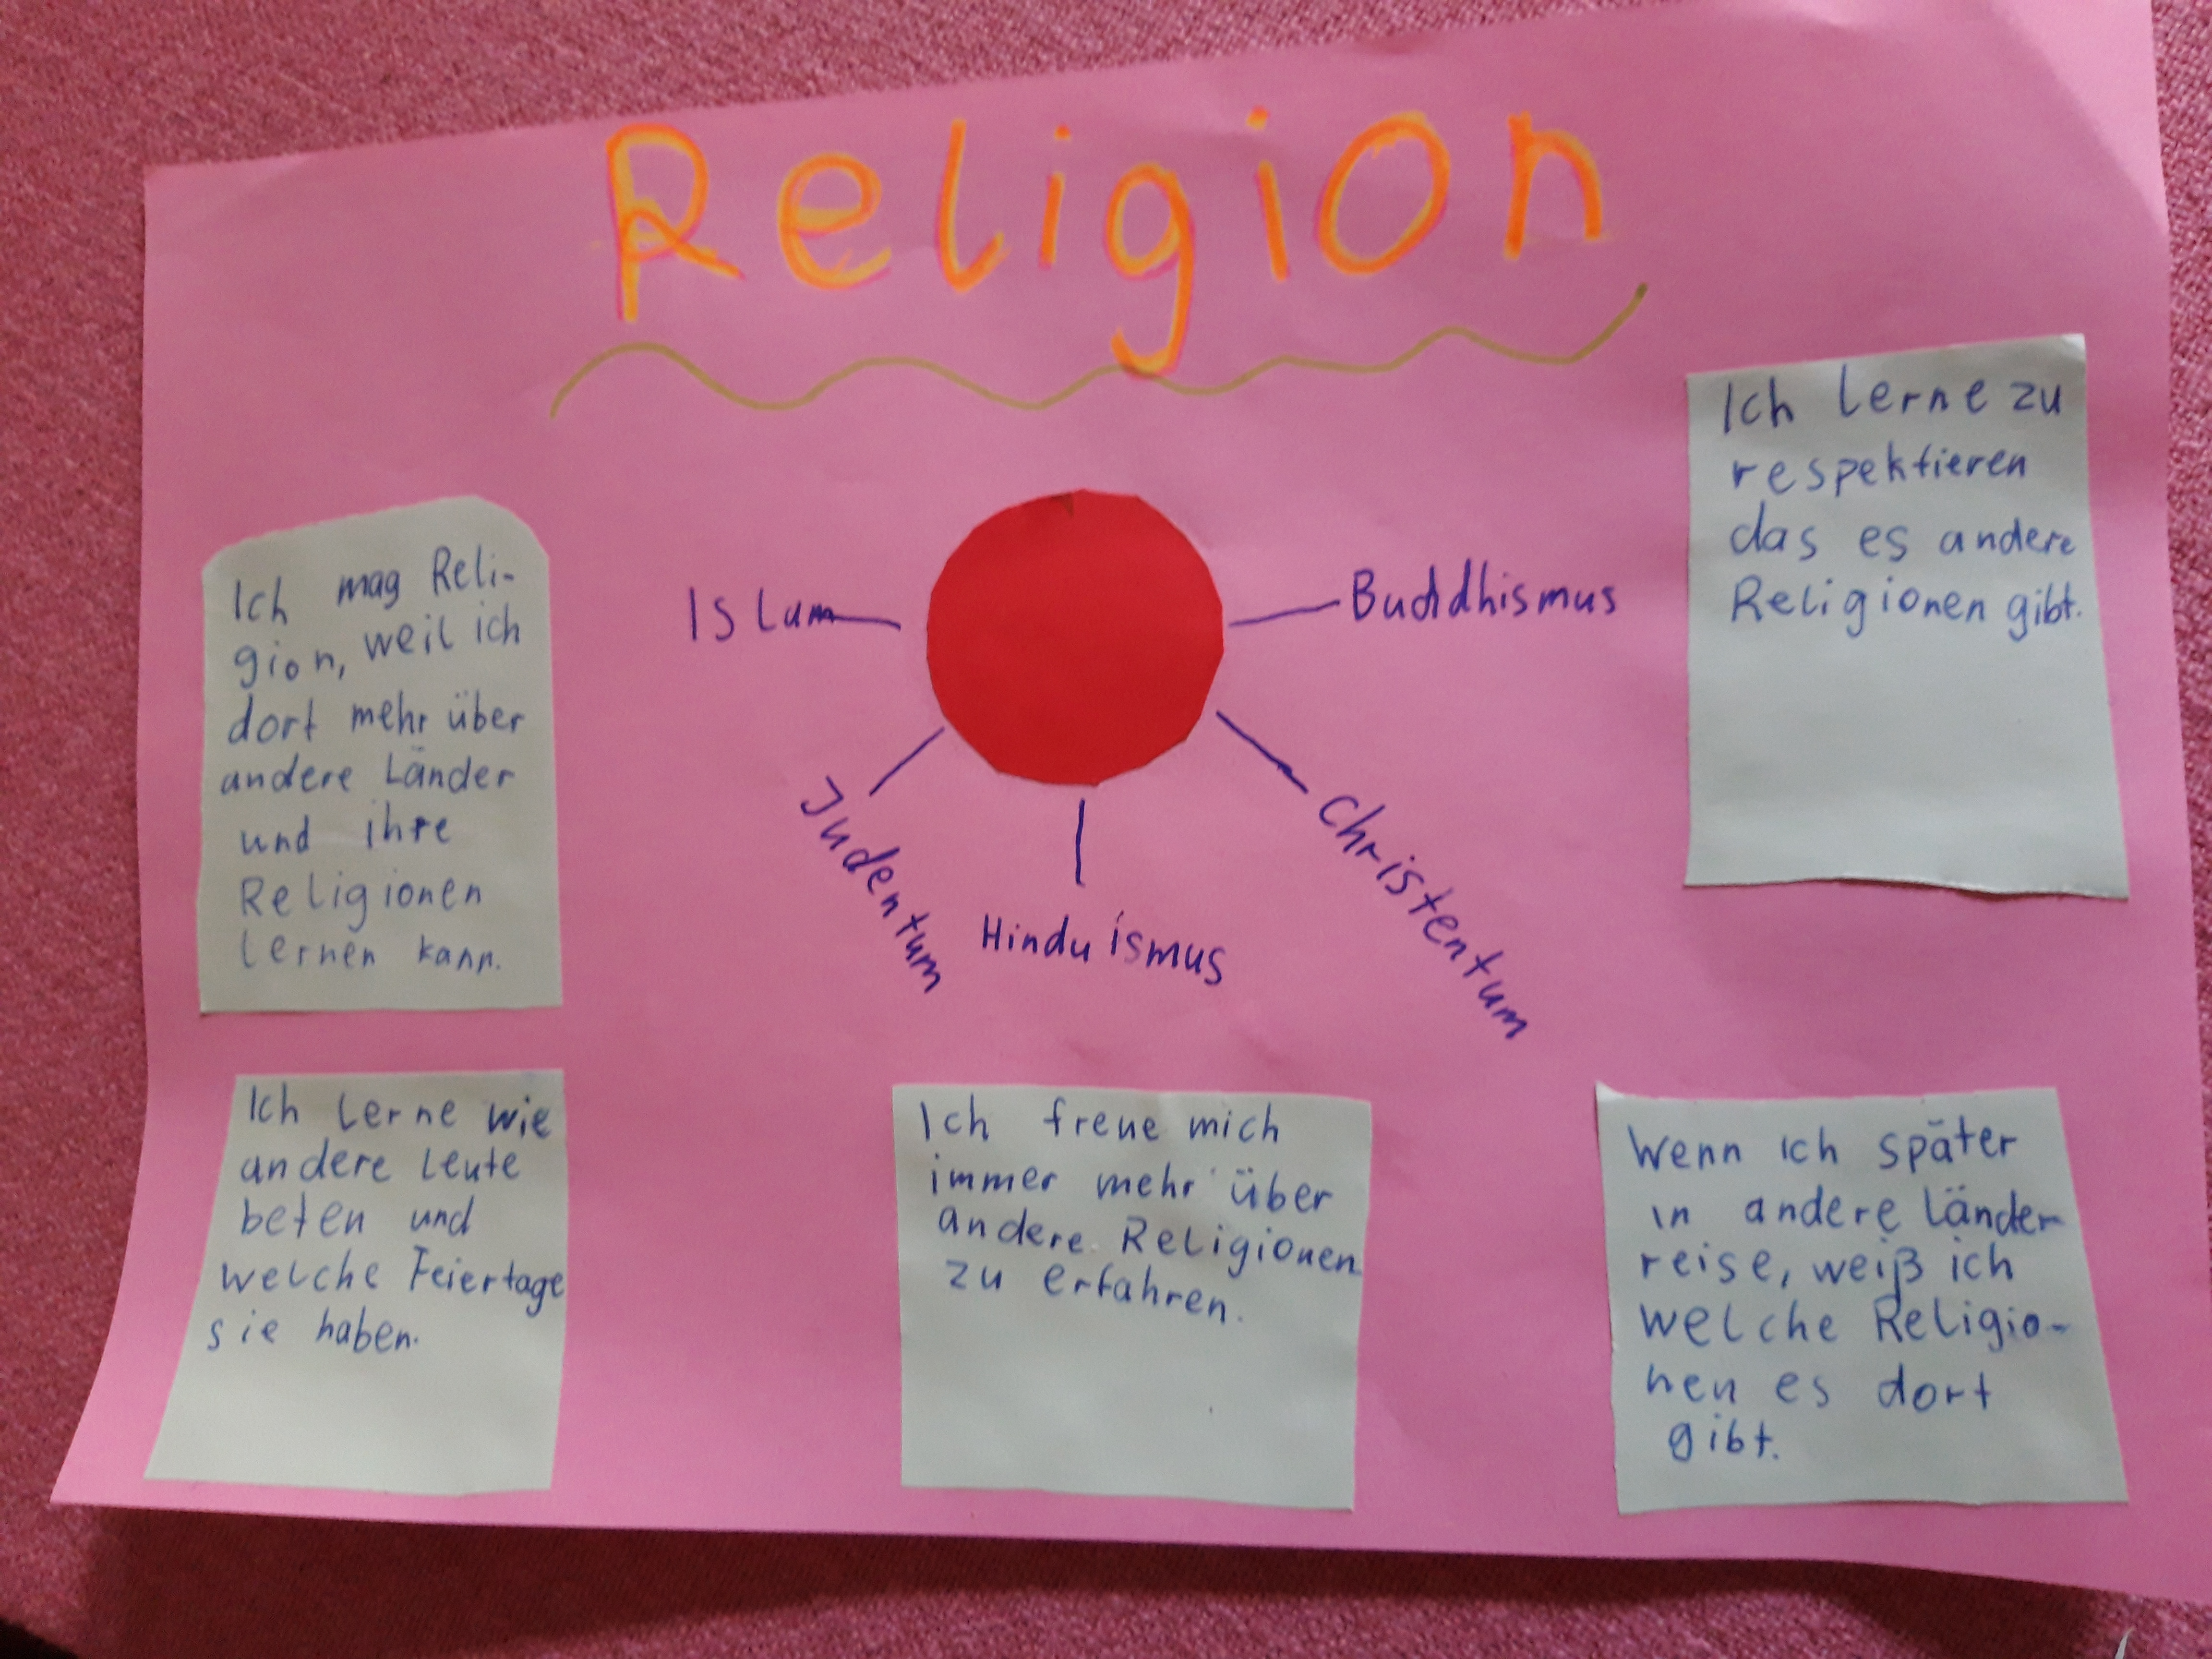 Religion
Islam
Buddhismus
Judentum
Hinduismus
Christentum
Ich lerne zu
respektieren
das es andere
Religionen gibt.
Ich mag Reli-
gion, weil ich
dort mehr über
andere Länder
und ihre
Religionen
lernen kann.
Ich lerne wie
andere Leute
beten und
welche Feiertage
sie haben.
Ich freue mich
immer mehr über
andere Religionen
zu erfahren.
Wenn ich später
in andere Länder
reise, weiß ich
welche Religio-
nen es dort
gibt.